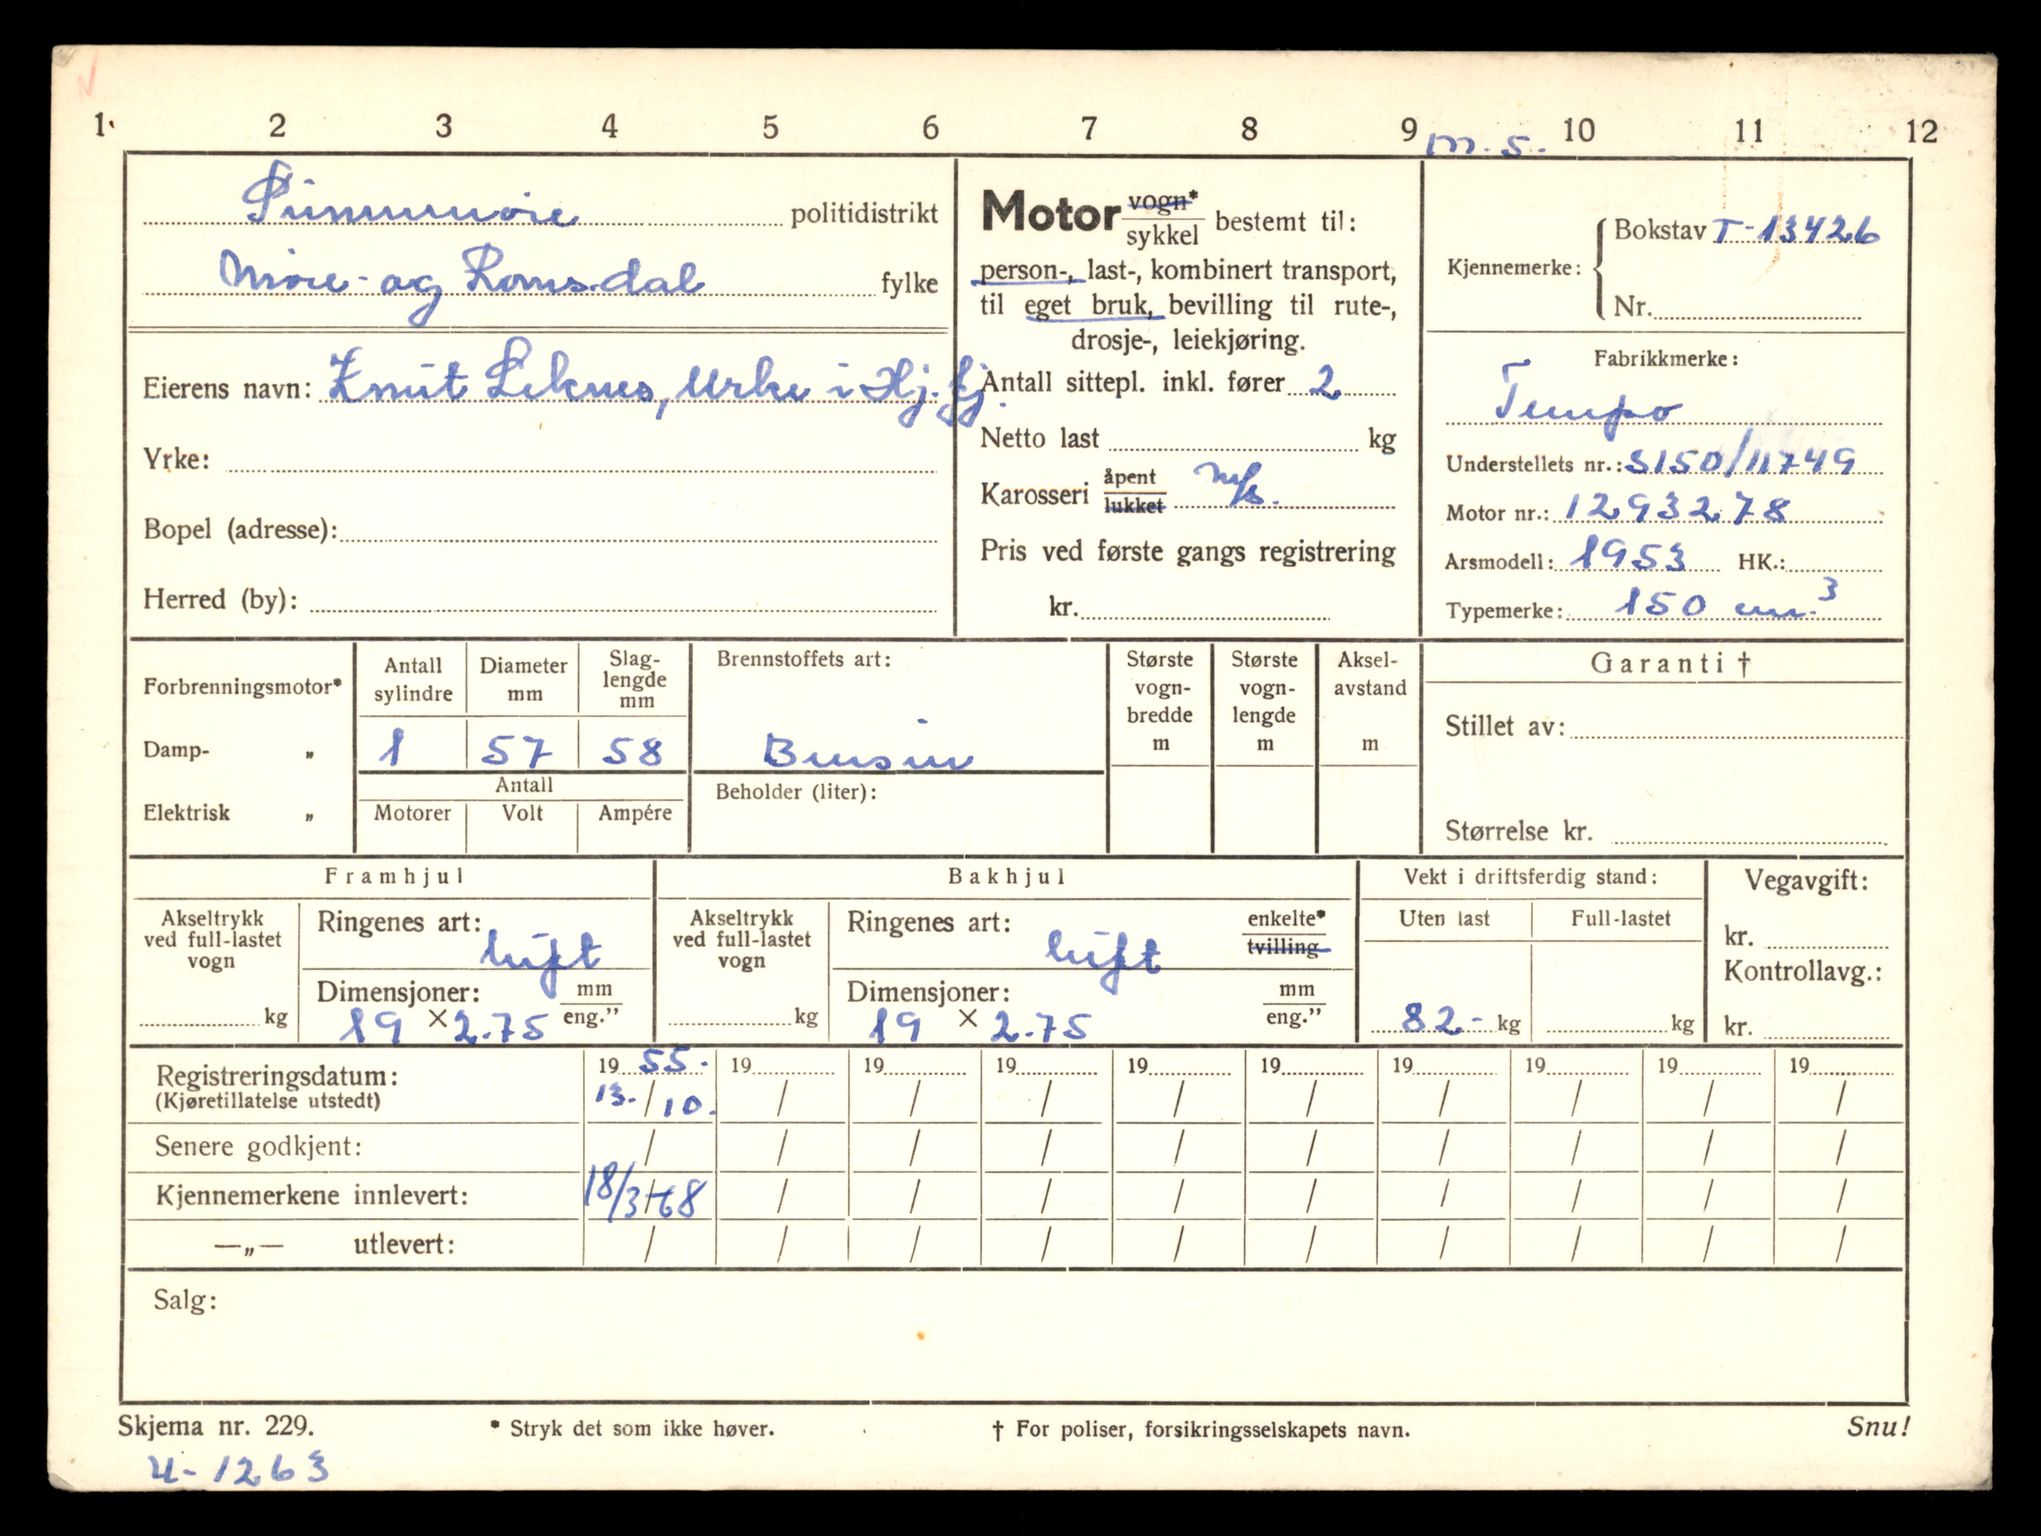 1 2 3 4 5 6 7 8 9 10 11 12
m.s.
Sunnmøre politidistrikt
Møre- og Romsdal fylke
Eierens navn: Knut Leknes, Urke i Hj.fj.
Yrke:
Bopel (adresse):
Herred (by):
Motor vogn* / sykkel bestemt til:
person-, last-, kombinert transport,
til eget bruk, bevilling til rute-,
drosje-, leiekjøring.
Antall sittepl. inkl. fører 2
Netto last kg
Karosseri åpent / lukket m/s.
Pris ved første gangs registrering
kr.
Kjennemerke: Bokstav T-13426
Nr.
Fabrikkmerke:
Tempo
Understellets nr.: S150/11749
Motor nr.: 1293278
Arsmodell: 1953 HK.:
Typemerke: 150 cm.³
Forbrenningsmotor*
Damp- „
Elektrisk „
Antall sylindre
Diameter mm
Slag-lengde mm
1 57 58
Antall
Motorer Volt Ampére
Brennstoffets art:
Bensin
Beholder (liter):
Største vogn-bredde m
Største vogn-lengde m
Aksel-avstand m
Garanti †
Stillet av:
Størrelse kr.
Framhjul
Akseltrykk ved full-lastet vogn
kg
Ringenes art:
luft
Dimensjoner: mm / eng."
19 × 2.75
Bakhjul
Akseltrykk ved full-lastet vogn
kg
Ringenes art: enkelte* / tvilling
luft
Dimensjoner: mm / eng."
19 × 2.75
Vekt i driftsferdig stand:
Uten last Full-lastet
82- kg kg
Vegavgift:
kr.
Kontrollavg.:
kr.
Registreringsdatum: 19 55. 19 19 19 19 19 19 19 19 19
(Kjøretillatelse utstedt) 13./10. / / / / / / / / /
Senere godkjent: / / / / / / / / / /
Kjennemerkene innlevert: 18/3-68 / / / / / / / / /
—„— utlevert: / / / / / / / / / /
Salg:
Skjema nr. 229. * Stryk det som ikke høver. † For poliser, forsikringsselskapets navn. Snu!
U-1263